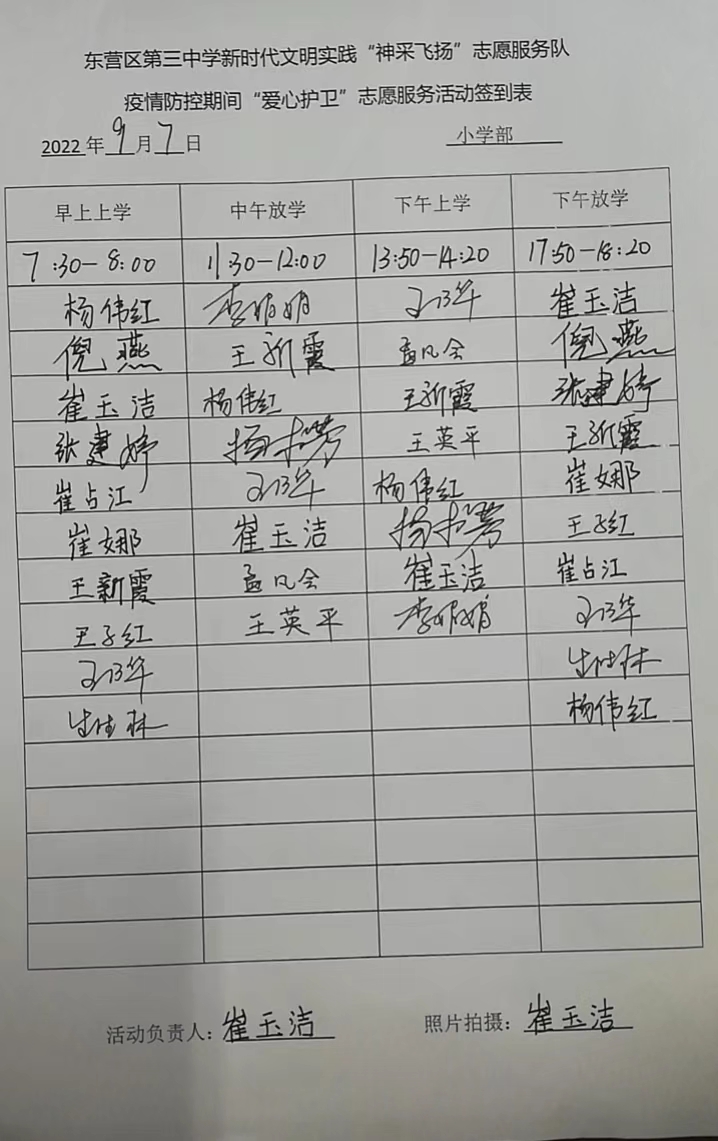 东营区第三中学新时代文明实践“神采飞扬”志愿服务队
疫情防控期间“爱心护卫”志愿服务活动签到表
2022年9月7日 小学部
早上上学 中午放学 下午上学 下午放学
7:30-8:00 11:30-12:00 13:50-14:20 17:50-18:20
杨伟红 李娟娟 崔玉洁
倪燕 王新霞 孟凡会 倪燕
崔玉洁 杨伟红 王新霞 张建婷
张建婷 王英平 王新霞
崔占江 杨伟红 崔娜
崔娜 崔玉洁 王子红
王新霞 孟凡会 崔玉洁 崔占江
王子红 王英平 李娟娟
杨伟红
活动负责人：崔玉洁 照片拍摄：崔玉洁